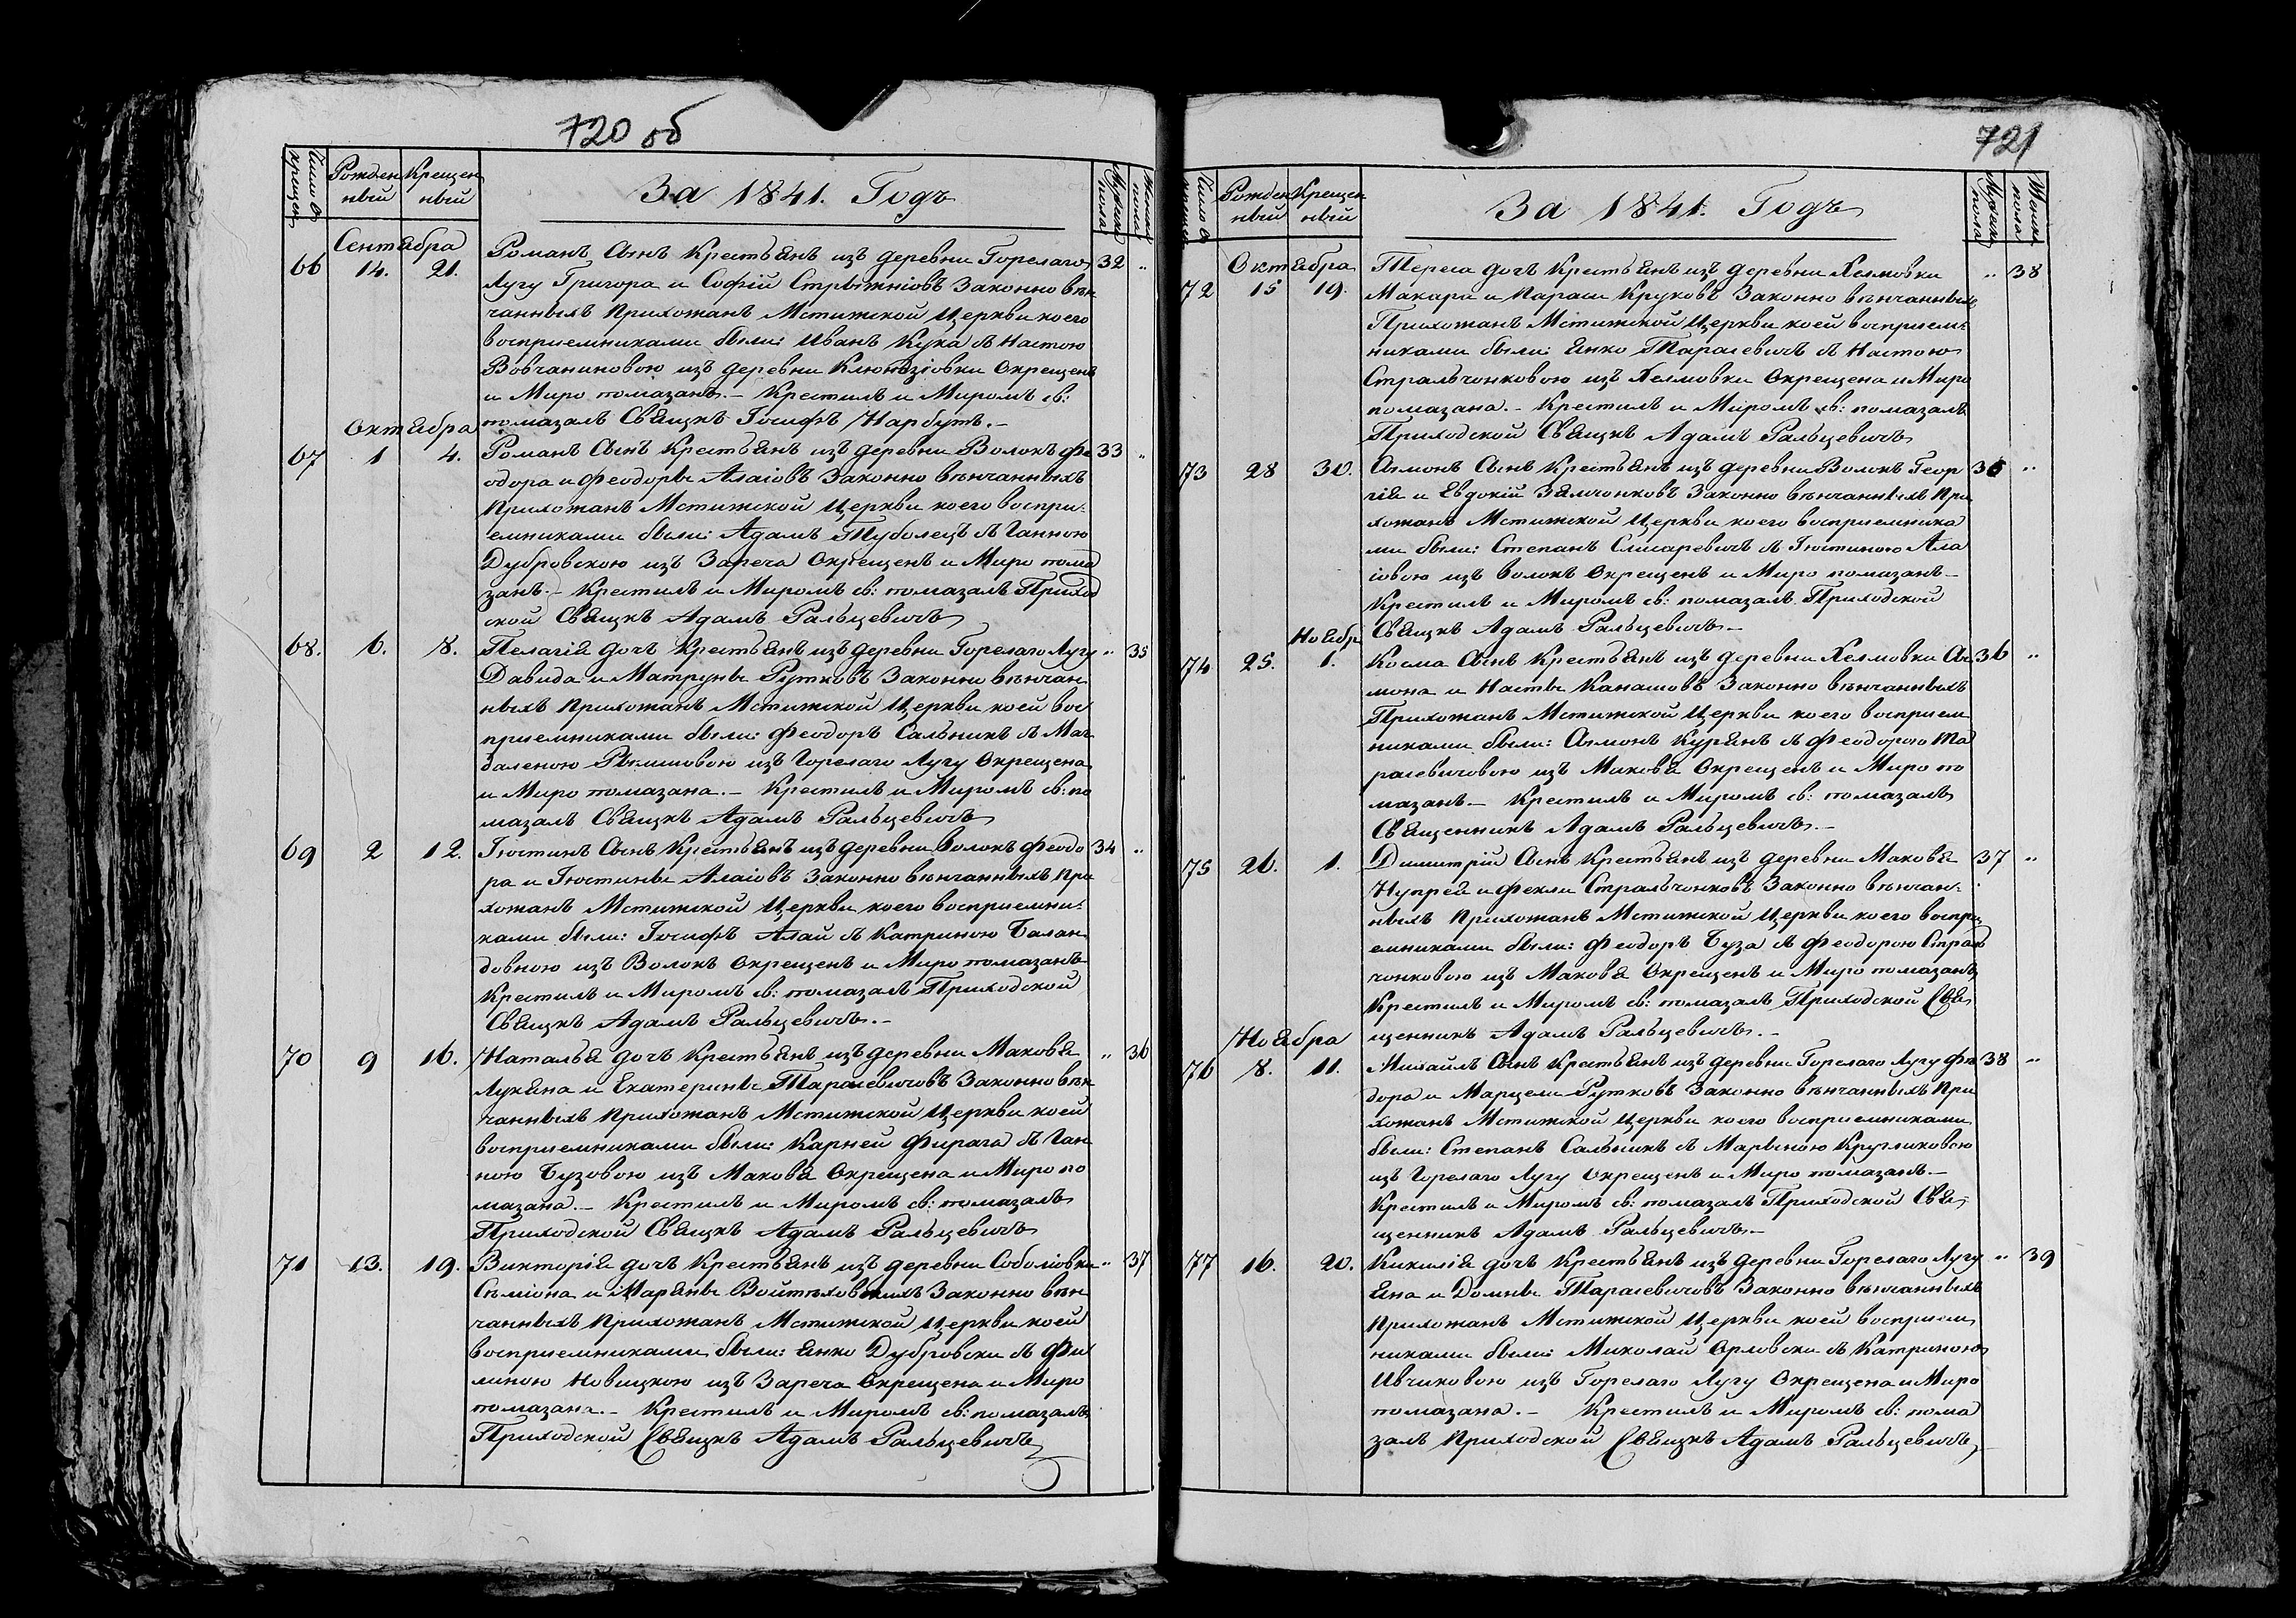 720 об
Число крещен. Рожден Крещен Мужеска пола Женска пола
ный ный
За 1841. Годъ
Сентября
66 14. 21. Романъ Сынъ Крестьянъ изъ деревни Горелаго 32 "
Лугу Григора и Софіи Стрыжніовъ Законно вѣн
чанныхъ Прихожанъ Мстижской Церкви коего
восприемниками были: Иванъ Кука съ Настою
Вовчаниновою изъ деревни Окрещенъ
и Миро помазанъ. – Крестилъ и Миромъ св:
помазалъ Свящкъ Іосифъ Нарбутъ. –
Октября
67 1 4. Романъ Сынъ Крестьянъ изъ деревни Волокъ Фе 33 "
одора и Феодоры Алаіовъ Законно вѣнчанныхъ
Прихожанъ Мстижской Церкви коего воспри:
емниками были: Адамъ Туболецъ съ Ганною
Дубровскою изъ Заречa Окрещенъ и Миро пома
занъ. – Крестилъ и Миромъ св: помазалъ Приход
ской Свящкъ Адамъ Ральцевичъ
68. 6. 8. Пелагія дочъ Крестьянъ изъ деревни Горелаго Лугу " 35
Давида и Матруны Рутковъ Законно вѣнчан
ныхъ прихожанъ Мстижской Церкви коей вос
приемниками были: Феодоръ Сальникъ съ Маг
даленою Рымшовою изъ Горелаго Лугу Окрещена
и Миро помазана. – Крестилъ и Миромъ св: по
мазалъ Свящкъ Адамъ Ральцевичъ
69 2 12. Іюстинъ Сынъ Крестьянъ изъ деревни Волокъ Феодо 34 "
ра и Іюстины Алаіовъ Законно вѣнчанныхъ При
хожанъ Мстижской Церкви коего восприемни:
ками были: Іосифъ Алай съ Катриною Балан
довною изъ Волокъ Окрещенъ и Миро помазанъ
Крестилъ и Миромъ св: помазалъ Приходской
Свящкъ Адамъ Ральцевичъ. –
70 9 16. Наталья дочъ Крестьянъ изъ деревни Маковя " 36
Лукяна и Екатерины Тарасевичовъ Законно вѣн
чанныхъ Прихожанъ Мстижской Церкви коей
восприемниками были: Карней Фирага съ Ган
ною Бузовою изъ Маковя Окрещена и Миро по
мазана. – Крестилъ и Миромъ св: помазалъ
Приходской Свящкъ Адамъ Ральцевичъ
71 13. 19. Викторія дочъ Крестьянъ изъ деревни Соболіовки " 37
Сѣміона и Маряны Войтѣховскихъ Законно вѣн
чанныхъ Прихожанъ Мстижской Церкви коей
восприемниками были: Янко Дубровски съ Фи
линою Новицкою изъ Зареча Окрещена и Миро
помазана. – Крестилъ и Миромъ св: помазалъ
Приходской Свящкъ Адамъ Ральцевичъ
721
Число крещен. Рожден Крещен Мужеска пола Женска пола
ный ный
За 1841. Годъ
Октября
72 15 19. Тереса дочъ Крестьянъ изъ деревни Хелмовки " 38
Макара и Параси Круковъ Законно вѣнчанныхъ
Прихожанъ Мстижской Церкви коей восприем:
никами были: Янко Тарасевичъ съ Настою
Стральчонковою изъ Хелмовки Окрещена и Миро
помазана. – Крестилъ и Миромъ св: помазалъ
Приходской Свящкъ Адамъ Ральцевичъ
73 28 30. Сымонъ Сынъ Крестьянъ изъ деревни Волокъ Геор 35 "
гія и Евдокіи Зямчонковъ Законно вѣнчанныхъ При
хожанъ Мстижской Церкви коего восприемника
ми были: Степанъ Слисаревичъ съ Іюстиною Ала
іовою изъ Волокъ Окрещенъ и Миро помазанъ –
Крестилъ и Миромъ св: помазалъ Приходской
Свящкъ Адамъ Ральцевичъ –
Ноябр
74 25. 1. Косма Сынъ Крестьянъ изъ деревни Хелмовки Сы 36 "
мона и Насты Канашовъ Законно вѣнчанныхъ
Прихожанъ Мстижской Церкви коего восприем
никами были: Сымонъ Курянъ съ Феодорою Та
расевичовою изъ Маковя Окрещенъ и Миро по
мазанъ – Крестилъ и Миромъ св: помазалъ
Священникъ Адамъ Ральцевичъ. –
75 26. 1. Димитрій Сынъ Крестьянъ изъ деревни Маковя 37 "
Нупрея и Фекли Стральчонковъ Законно вѣнчан:
ныхъ Прихожанъ Мстижской Церкви коего воспри
емниками были: Феодоръ Буза съ Феодорою Страль
чонковою изъ Маковя Окрещенъ и Миро помазанъ
Крестилъ и Миромъ св: помазалъ Приходской Свя
щенникъ Адамъ Ральцевичъ. –
Ноября
76 8. 11. Михайлъ Сынъ Крестьянъ изъ деревни Горелаго Лугу Фе 38 "
дора и Марцели Рутковъ Законно вѣнчанныхъ При
хожанъ Мстижской Церкви коего восприемниками
были: Степанъ Сальникъ съ Марьяною Кругликовою
изъ Горелаго Лугу Окрещенъ и Миро помазанъ. –
Крестилъ и Миромъ св: помазалъ Приходской Свя
щенникъ Адамъ Ральцевичъ –
77 16. 20. Кикилія дочъ Крестьянъ изъ деревни Горелаго Лугу " 39
Яна и Домны Тарасевичовъ Законно вѣнчанныхъ
Прихожанъ Мстижской Церкви коей восприем
никами были: Миколай Орловски съ Катриною
Ивчиковою изъ Горелаго Лугу Окрещена и Миро
помазана. – Крестилъ и Миромъ св: пома
залъ Приходской Свящкъ Адамъ Ральцевичъ